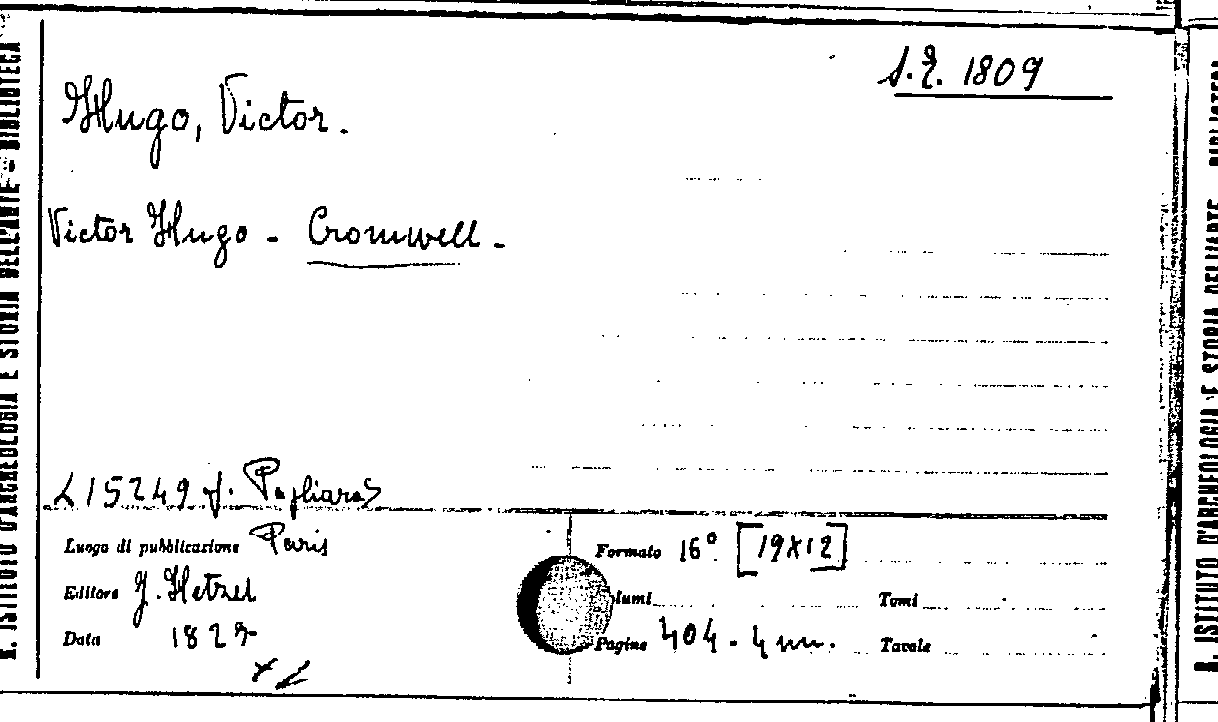 S.L. 1809
Hugo, Victor.
Victor Hugo - Cromwell.
L 15249 f. Pagliara
Luogo di pubblicazione Paris
Editore J. Hetzel
Data 1827
Formato 16° [19x12]
lumi Tomi
Pagine 404 - 4 nn. Tavole
R. ISTITUTO D'ARCHEOLOGIA E STORIA DELL'ARTE - BIBLIOTECA
R. ISTITUTO D'ARCHEOLOGIA E STORIA DELL'ARTE BIBLIOTECA